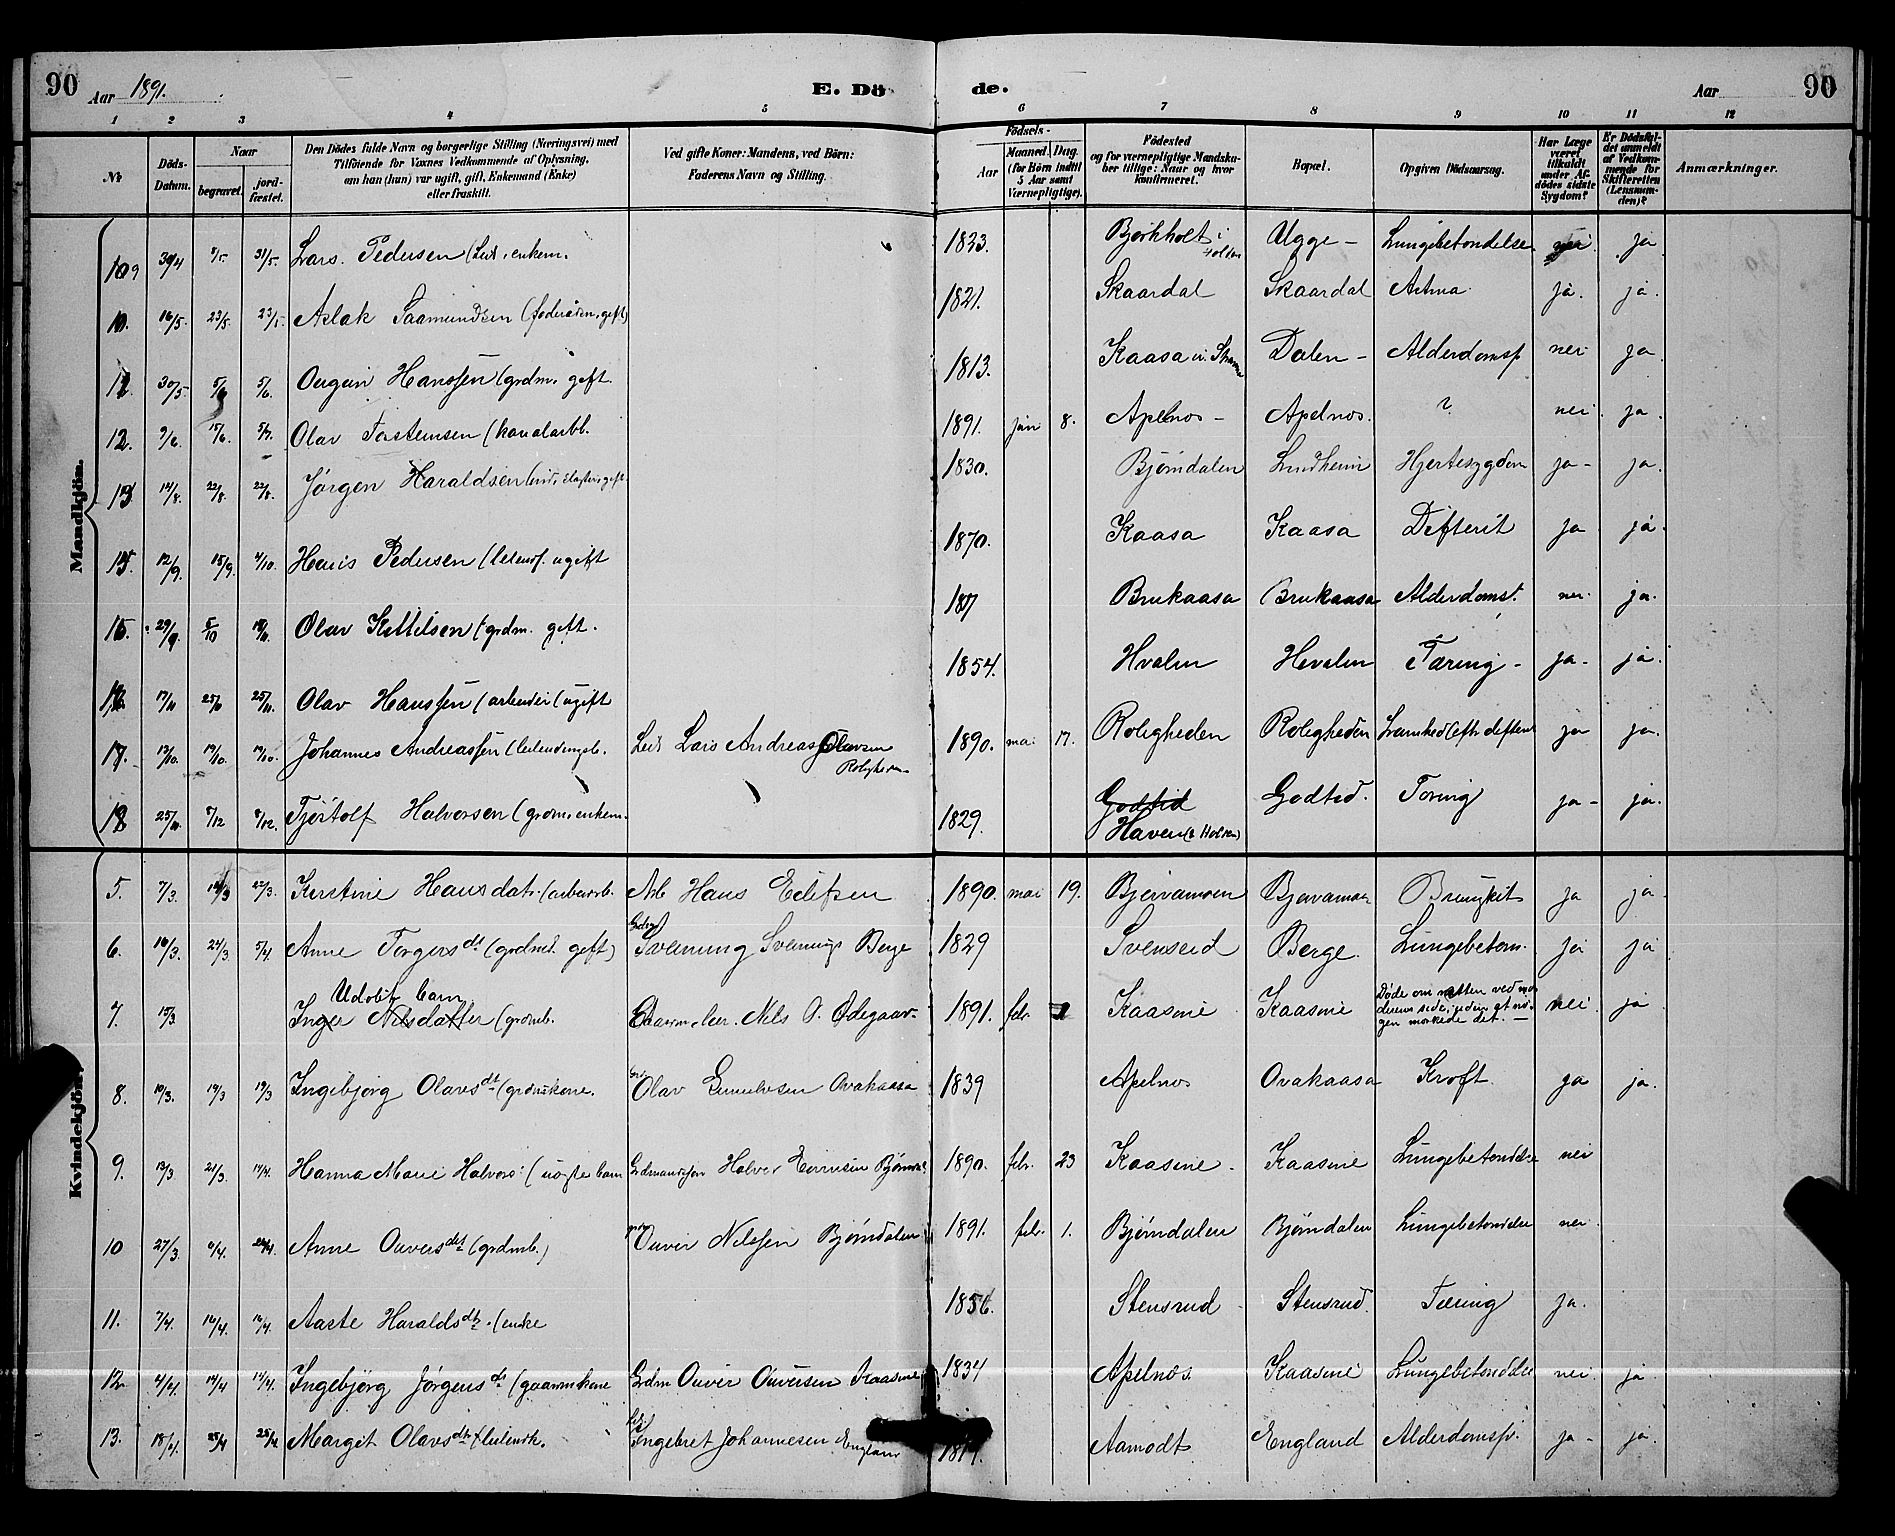 90
Aar 1891.
E. Dö
de.
Aar
90
1 2 3 4 5 6 7 8 9 10 11 12
№
Döds-Datum.
Naar
begravet.
jord-fæstet.
Den Dödes fulde Navn og borgerlige Stilling (Næringsvei) med
Tilföiende for Voxnes Vedkommende af Oplysning,
om han (hun) var ugift, gift, Enkemand (Enke)
eller fraskilt.
Ved gifte Koner: Mandens, ved Börn:
Faderens Navn og Stilling.
Födsels-
Aar
Maaned. Dag.
(for Börn indtil
5 Aar samt
Værnepligtige).
Födested
og for værnepligtige Mandska-
ber tillige: Naar og hvor
konfirmeret.
Bopæl.
Opgiven Dödsaarsag.
Har Læge
været
tilkaldt
under Af-
dödes sidste
Sygdom?
Er Dödsfal-
det anmeldt
af Vedkom-
mende for
Skifteretten
(Lensman-
den)?
Anmærkninger.
Mandkjön.
30/4 31/5. Lars Pedersen (Leil. enkem. 1823. Bjørkholt i Holden Ugge - Lungebetændelse nei ja
16/5. 23/5. 23/5. Aslak Saamundsen (föderåden, gift) 1821. Skaardal Skaardal Astma ja. ja.
30/5. 5/6 5/6. Ougun Hanssen (grdm. gift. 1813. Kaasa Dalen - Alderdomsf nei ja
12. 9/6. 15/6. 5/7. Olav Tostensen (kanalarbb. 1891. jun 8. Apelnos - Apelnos. ? nei ja.
13 12/8. 22/8. 22/8. Jørgen Haraldsen 1830. Bjørndalen Lindheim Hjertesygdom ja - ja.
12/9. 15/9. 4/10. Hans Pedersen (leilends. ugift 1870. Kaasa Kaasa Difterit ja ja.
29/9. 5/10 Olav Kittilsen (grdm. gift. Brukaasa Brukaasa Alderdomst. nei. ja.
17/11 25/11 25/11. Olav Hanssen (arbeider (ugift 1854. Hvalen Hvalen Tæring - ja - ja.
17. 13/10. 19/10. 19/10. Johannes Andreassen (leilendingsb. Leil Lars Andreas Olavsen Roligheden 1890. mai 17. Roligheden Roligheden Lamhed (eftr difterit ja ja.
18 25/11. 8/12 8/12. Tjöstolf Halvorsen (grdm. enkem. 1829. Godtid Haven (i Holden) Godtid. Tæring ja - ja.
Kvindekjön.
5. 7/3. 22/3. Kirstine Hansdatr. (arbeiderb. Arb Hans Edefsen 1890. mai 19. Bjervamoen Bjervamoen Bronkit ja ja
6. 16/3. 24/3. 5/4 Anne Torgersdt (grdmd. gift) Gdbr Svenung Svenungs Berge 1829 Svenseid Berge. Lungebetæn. ja ja
7. 15/3. Udøbt barn Inger Nilsdatter (grdmb. Gaarmeier. Nils O. Ødegaar- 1891. febr. Kaasene Kaasene Døde om natten ved mo-
derens side, uden at no-
gen mærkede det. - nei ja
8. 10/3. 19/3 19/3 Ingebjørg Olavsdt (grdmkone. Olav Gunulvsen Ovakaasa 1839 Apelnos Ovakaasa Kræft. ja ja.
9. 13/3 21/3. 14/4. Hanna Marie Halvors: (uægte barn Grdmandssøn Halvor Evensen Bjørnd. 1890. febr. 23 Kaasene - Kaasene Lungebetændelse nei
10 27/3. 6/4. Anne Ouversdt (grdmb.) Ouver Nilssen Bjørndalen 1891. febr. 1. Bjørndalen Bjørndalen Lungebetændelse nei
11. 7/4. 16/4. 16/4. Aaste Haraldsdtr. (enke 1856. Stensrud Stensrud. Tæring ja.
12. 4/4. 14/4 14/4. Ingebjörg Jørgensdt (gaarmkone Grdm Ouver Ouversen Kaasene 1834 Apelnos. Kaasene Lungebetændelse nei ja
13. 18/4. 25/4 25/4. Margit Olavsdtr (leilendk. Leil. Ingebret Johannesen England Aamodt England Alderdomssv. ja - ja.